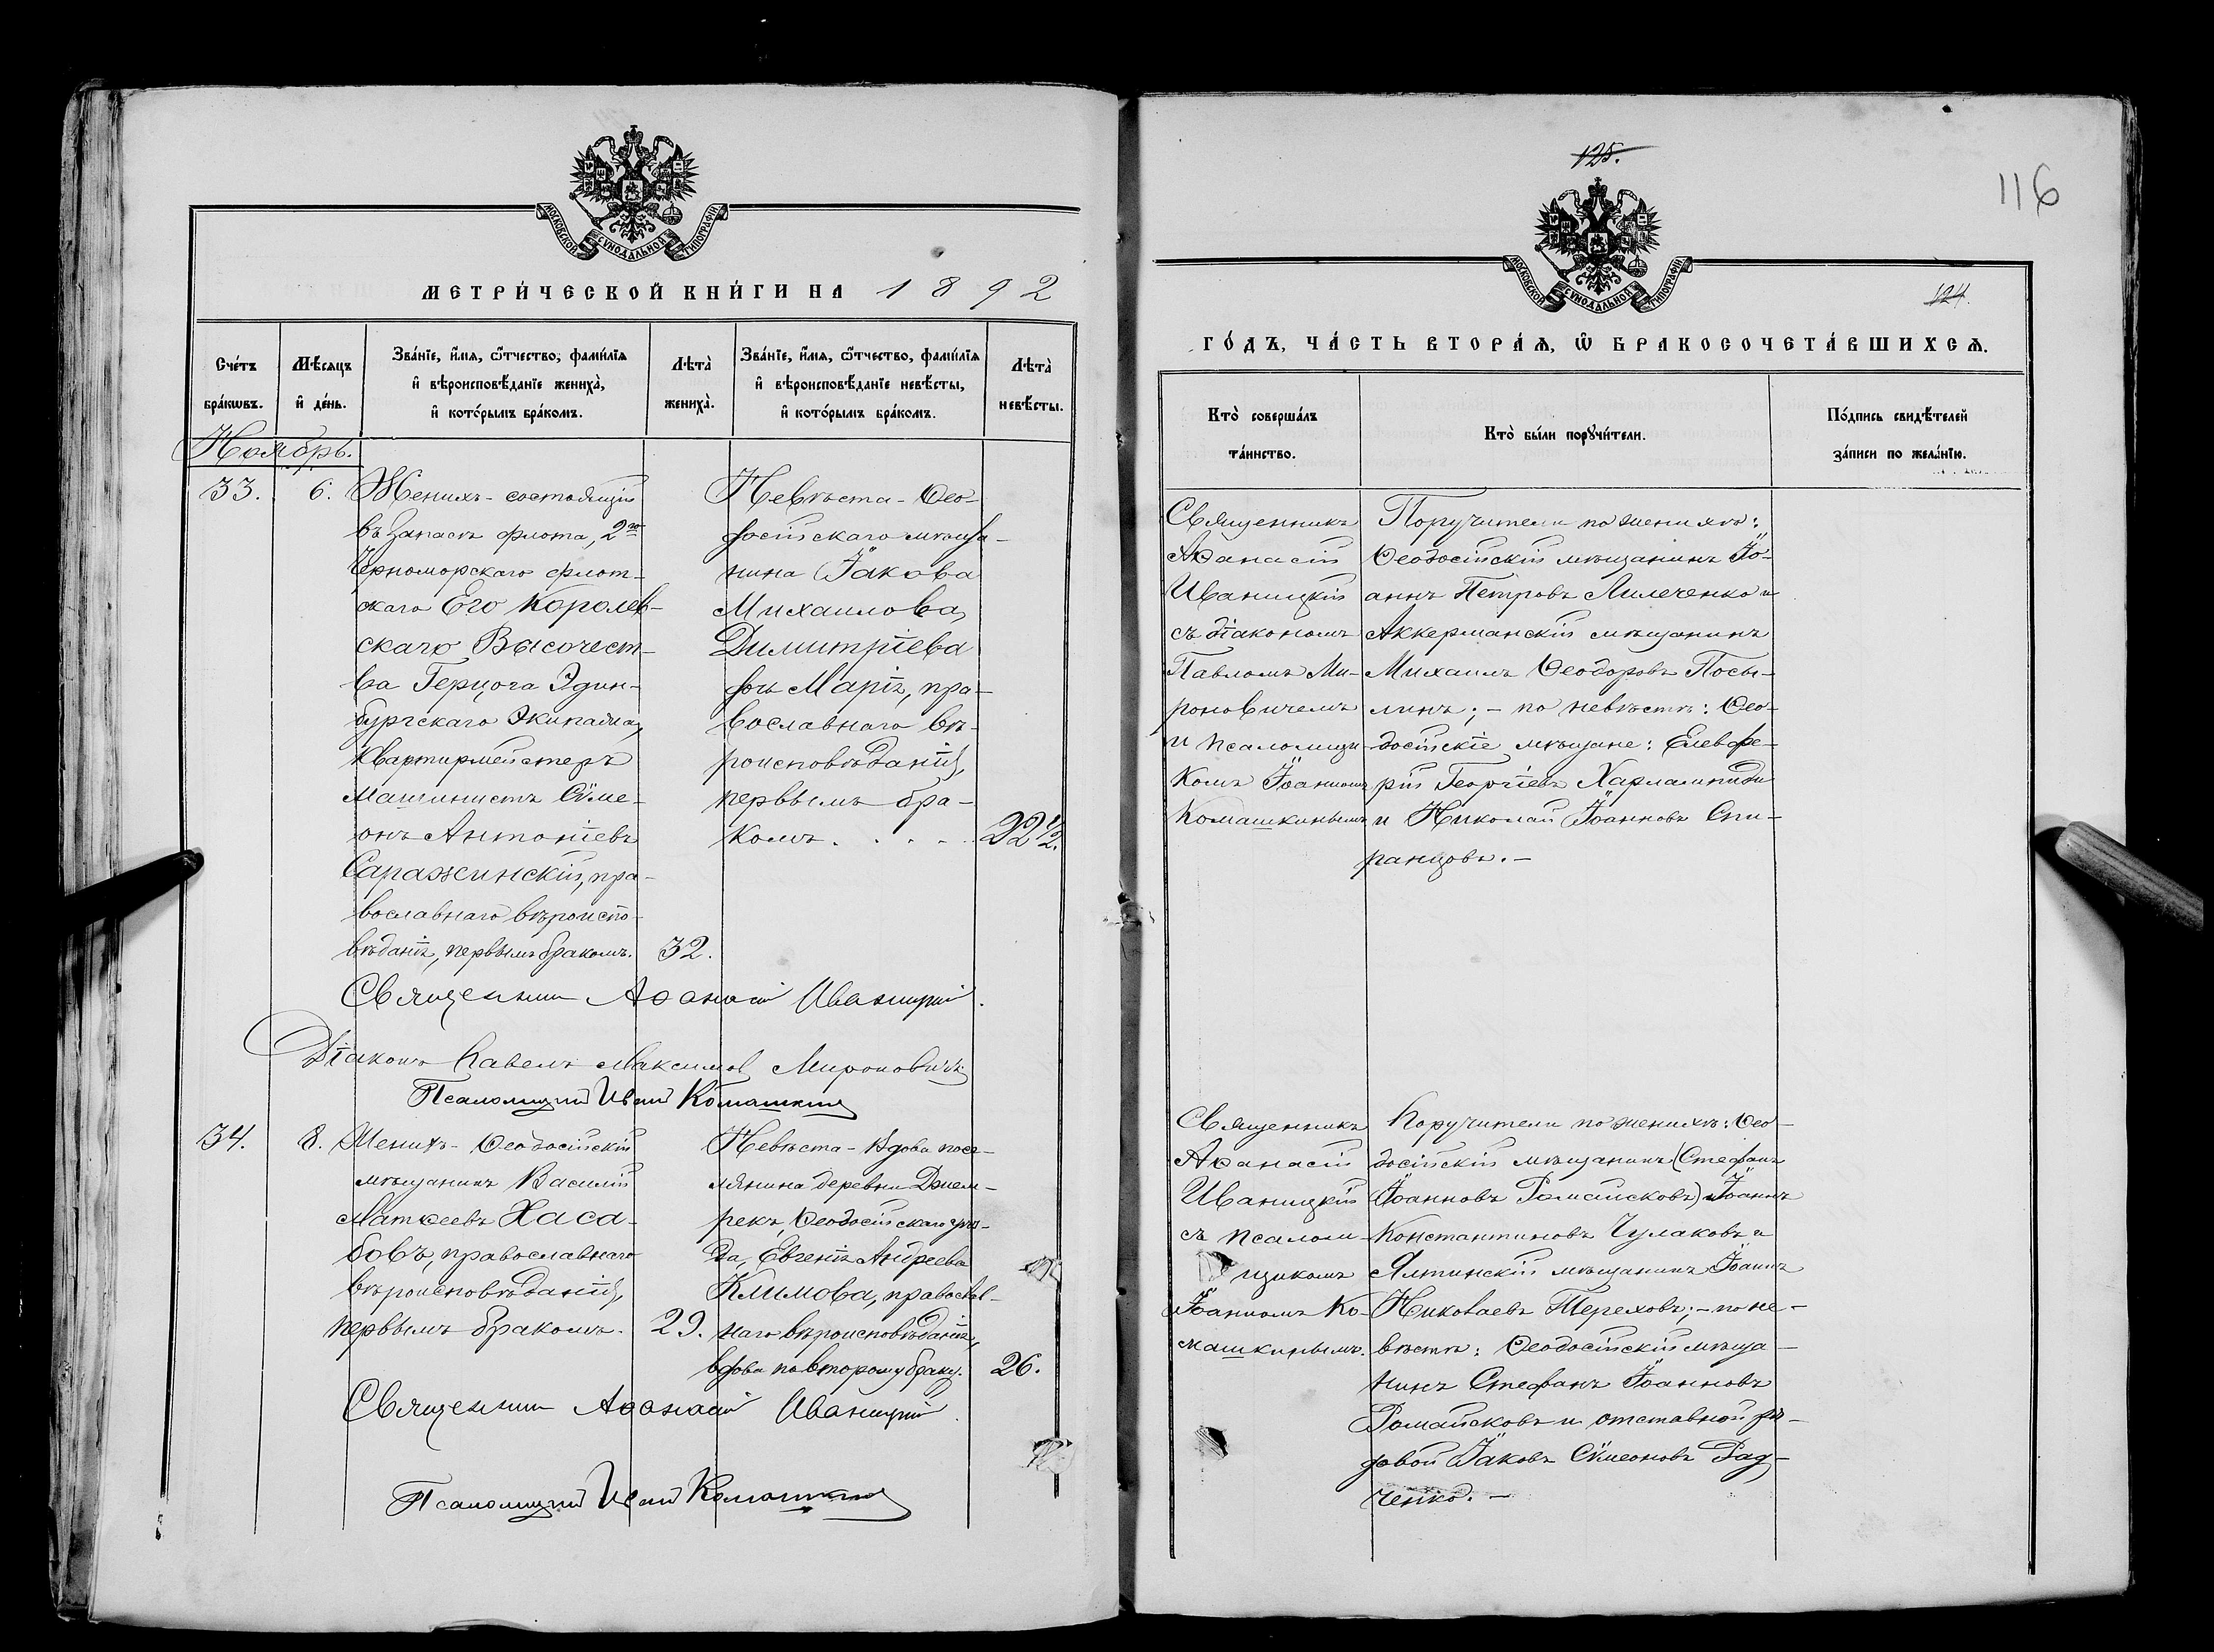 МОСКОВСКОЙ СѴНОДАЛЬНОЙ ТИПОГРАФІИ
МЕТРИ́ЧЕСКОЙ КНИ́ГИ НА 1892
Сче́тъ бра́кѡвъ.
Мѣ́сяцъ и҆ де́нь.
Зва́нїе, и҆́мя, ѻ҆́тчество, фами́лїя
и҆ вѣроисповѣ́данїе жениха̀,
и҆ кото́рымъ бра́комъ.
Лѣта̀ жениха̀.
Зва́нїе, и҆́мя, ѻ҆́тчество, фами́лїя
и҆ вѣроисповѣ́данїе невѣ́сты,
и҆ кото́рымъ бра́комъ.
Лѣта̀ невѣ́сты.
Ноябрь.
33.
6.
Женихъ - состоящій
въ запасѣ флота, 2го
Черноморскаго флот-
скаго Его Королев-
скаго Высочест-
ва Герцога Эдин-
бургскаго Экипажа,
Квартирмейстеръ
Машинистъ Сѵме-
онъ Антоніевъ
Саражинскій, пра-
вославнаго вѣроиспо-
вѣданія, первымъ бракомъ.
32.
Невѣста - Ѳео-
досійскаго мѣща-
нина Іакова
Михаилова
Димитріева
дочь Марія, пра-
вославнаго вѣ-
роисповѣданія,
первымъ бра-
комъ. . . . .
22 1/2.
Священникъ Аѳанасій Иваницкій.
Діаконъ Павелъ Максимов Мироновичъ
Псаломщикъ Иванъ Комашкинъ
34.
8.
Женихъ - Ѳеодосійскій
мѣщанинъ Василій
Матѳеевъ Хаса-
бовъ, православнаго
вѣроисповѣданія,
первымъ бракомъ.
29.
Невѣста - вдова посе-
лянина деревни Джем-
рекъ, Ѳеодосійскаго уѣз-
да, Евгенія Андреева
Климова, православ-
наго вѣроисповѣданія,
вдова по второму браку.
26.
Священникъ Аѳанасій Иваницкій.
Псаломщикъ Иванъ Комашкинъ
125.
116
МОСКОВСКОЙ СѴНОДАЛЬНОЙ ТИПОГРАФІИ
124.
ГО́ДЪ, ЧА́СТЬ ВТОРА́Я, Ѡ҆ БРАКОСОЧЕТА́ВШИХСЯ.
Кто̀ соверша́лъ
та́инство.
Кто̀ бы́ли порꙋчи́тели.
По́дпись свидѣ́телей
за́писи по жела́нїю.
Священникъ
Аѳанасій
Иваницкій
съ діакономъ
Павломъ Ми-
роновичемъ
и псаломщи-
комъ Іоанномъ
Комашкинымъ
Поручители по женихѣ:
Ѳеодосійскій мѣщанинъ Іо-
аннъ Петровъ Милеченко и
Аккерманскій мѣщанинъ
Михаилъ Ѳеодоровъ Посы-
линъ; - по невѣстѣ: Ѳео-
досійскіе мѣщане: Елевфе-
рій Георгіевъ Харлампиди
и Николай Іоанновъ Спи-
ранцовъ. -
Священникъ
Аѳанасій
Иваницкій
съ псалом-
щикомъ
Іоанномъ Ко-
машкинымъ.
Поручители по женихѣ: Ѳео-
досійскій мѣщанинъ (Стефанъ
Іоанновъ Романсковъ) Іоаннъ
Константиновъ Чулаковъ и
Ялтинскій мѣщанинъ Іоаннъ
Николаевъ Тереховъ; - по не-
вѣстѣ: Ѳеодосійскій мѣща-
нинъ Стефанъ Іоанновъ
Романсковъ и отставной ря-
довой Іаковъ Сѵмеоновъ Рад-
ченко. -